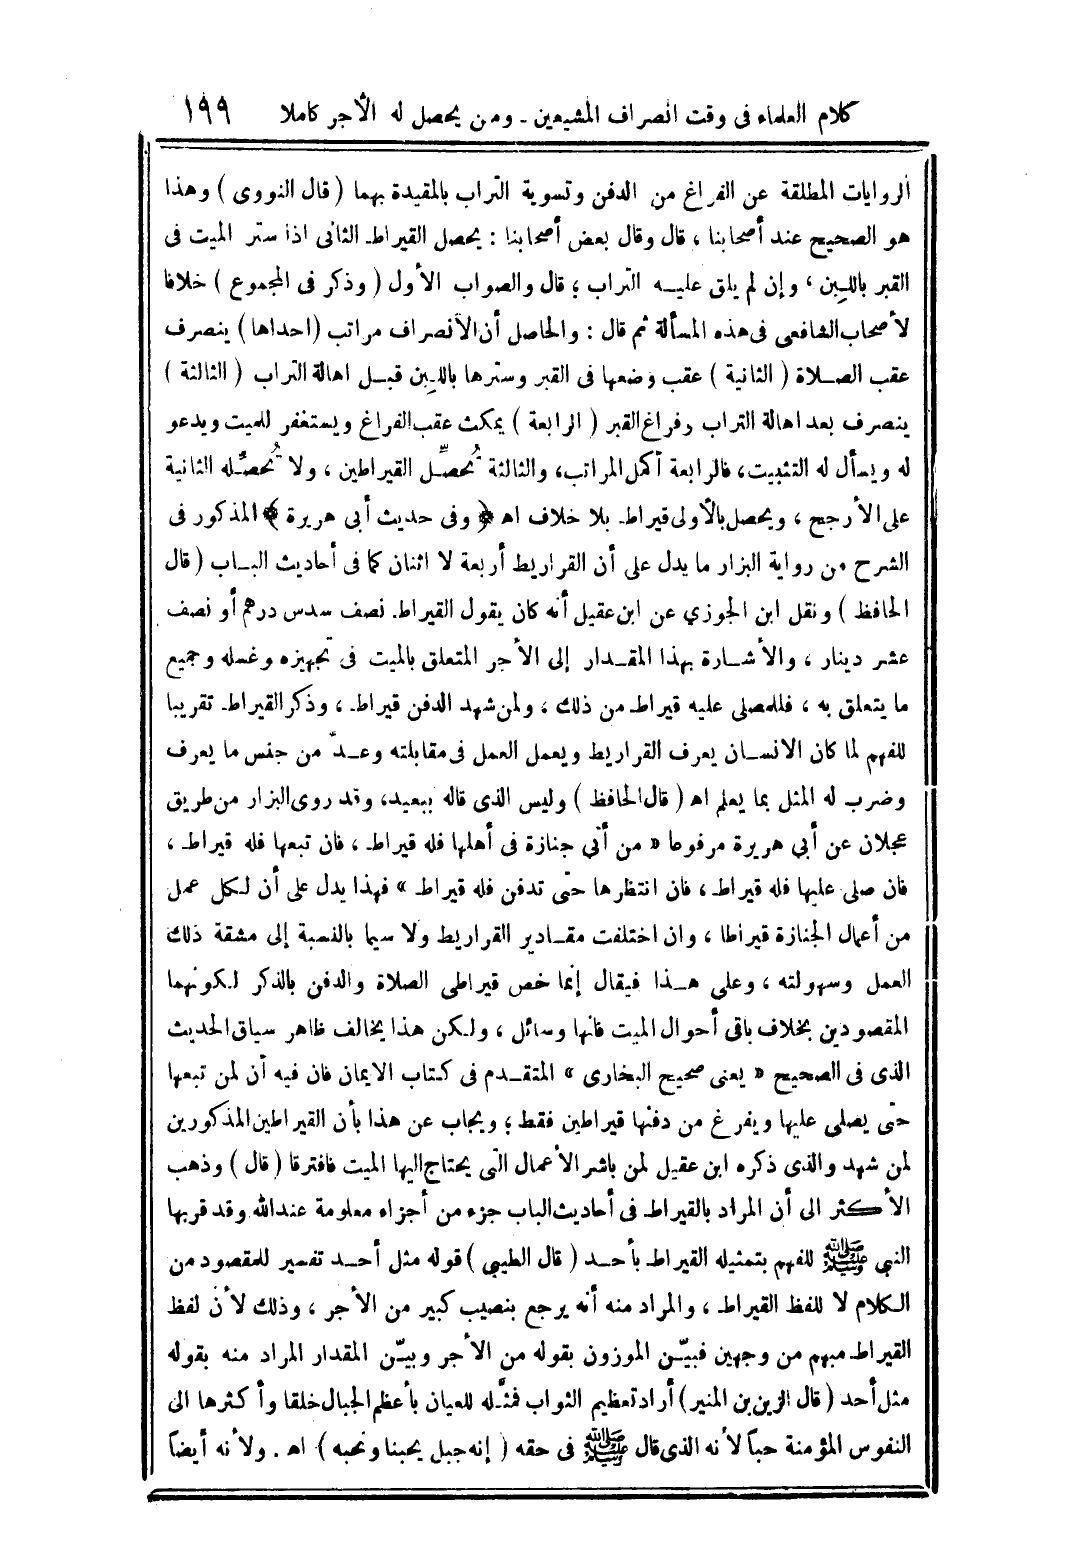 كلام العلماء فى وقت انصراف المشيعين - ومن يحصل له الأجر كاملا ١٩٩
الروايات المطلقة عن الفراغ من الدفن وتسوية التراب بالمقيدة بهما ( قال النووى ) وهذا
هو الصحيح عند أصحابنا ، قال وقال بعض أصحابنا : يحصل القيراط الثانى اذا ستر الميت فى
القبر باللبن ، وإن لم يلق عليه التراب ؛ قال والصواب الأول ( وذكر فى المجموع ) خلافا
لأصحاب الشافعى فى هذه المسألة ثم قال : والحاصل أن الأنصراف مراتب (احداها) ينصرف
عقب الصلاة ( الثانية ) عقب وضعها فى القبر وسترها باللبن قبل اهالة التراب ( الثالثة )
ينصرف بعد اهالة التراب وفراغ القبر ( الرابعة ) يمكث عقب الفراغ ويستغفر للميت ويدعو
له ويسأل له التثبيت، فالرابعة أكمل المراتب، والثالثة تُحصِّل القيراطين ، ولا تُحصِّله الثانية
على الأرجح ، ويحصل بالأولى قيراط بلا خلاف اه ﴿ وفى حديث أبى هريرة ﴾ المذكور فى
الشرح من رواية البزار ما يدل على أن القراريط أربعة لا اثنان كما فى أحاديث الباب ( قال
الحافظ ) ونقل ابن الجوزي عن ابن عقيل أنه كان يقول القيراط نصف سدس درهم أو نصف
عشر دينار ، والأشارة بهذا المقدار إلى الأجر المتعلق بالميت فى تجهيزه وغسله وجميع
ما يتعلق به ، فللمصلى عليه قيراط من ذلك ، ولمن شهد الدفن قيراط ، وذكر القيراط تقريبا
للفهم لما كان الانسان يعرف القراريط ويعمل العمل فى مقابلته وعدّ من جنس ما يعرف
وضرب له المثل بما يعلم اه ( قال الحافظ ) وليس الذى قاله ببعيد، وقد روى البزار من طريق
عجلان عن أبي هريرة مرفوعا « من أتي جنازة فى أهلها فله قيراط ، فان تبعها فله قيراط ،
فان صلى عليها فله قيراط ، فان انتظرها حتى تدفن فله قيراط » فهذا يدل على أن لكل عمل
من أعمال الجنازة قيراطا ، وان اختلفت مقادير القراريط ولا سيما بالنسبة إلى مشقة ذلك
العمل وسهولته ، وعلى هذا فيقال إنما خص قيراطى الصلاة والدفن بالذكر لكونهما
المقصودين بخلاف باقى أحوال الميت فانها وسائل ، ولكن هذا يخالف ظاهر سياق الحديث
الذى فى الصحيح « يعنى صحيح البخارى » المتقدم فى كتاب الايمان فان فيه أن لمن تبعها
حتى يصلى عليها ويفرغ من دفنها قيراطين فقط ؛ ويجاب عن هذا بأن القيراطين المذكورين
لمن شهد والذى ذكره ابن عقيل لمن باشر الأعمال التى يحتاج اليها الميت فافترقا ( قال ) وذهب
الأكثر الى أن المراد بالقيراط فى أحاديث الباب جزء من أجزاء معلومة عند الله وقد قربها
النبي ﷺ للفهم بتمثيله القيراط بأحد ( قال الطيبى ) قوله مثل أحد تفسير للمقصود من
الكلام لا للفظ القيراط ، والمراد منه أنه يرجع بنصيب كبير من الأجر ، وذلك لأن لفظ
القيراط مبهم من وجهين فبيّن الموزون بقوله من الأجر وبيّن المقدار المراد منه بقوله
مثل أحد ( قال الزين بن المنير) أراد تعظيم الثواب فمثّله للعيان بأعظم الجبال خلقا وأكثرها الى
النفوس المؤمنة حباً لأنه الذى قال ﷺ فى حقه ( إنه جبل يحبنا ونحبه ) اه . ولأنه أيضاً